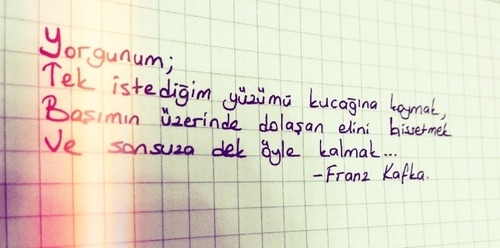 Yorgunum;
Tek istediğim yüzümü kucağına koymak,
Başımın üzerinde dolaşan elini hissetmek
Ve sonsuza dek öyle kalmak...
-Franz Kafka.